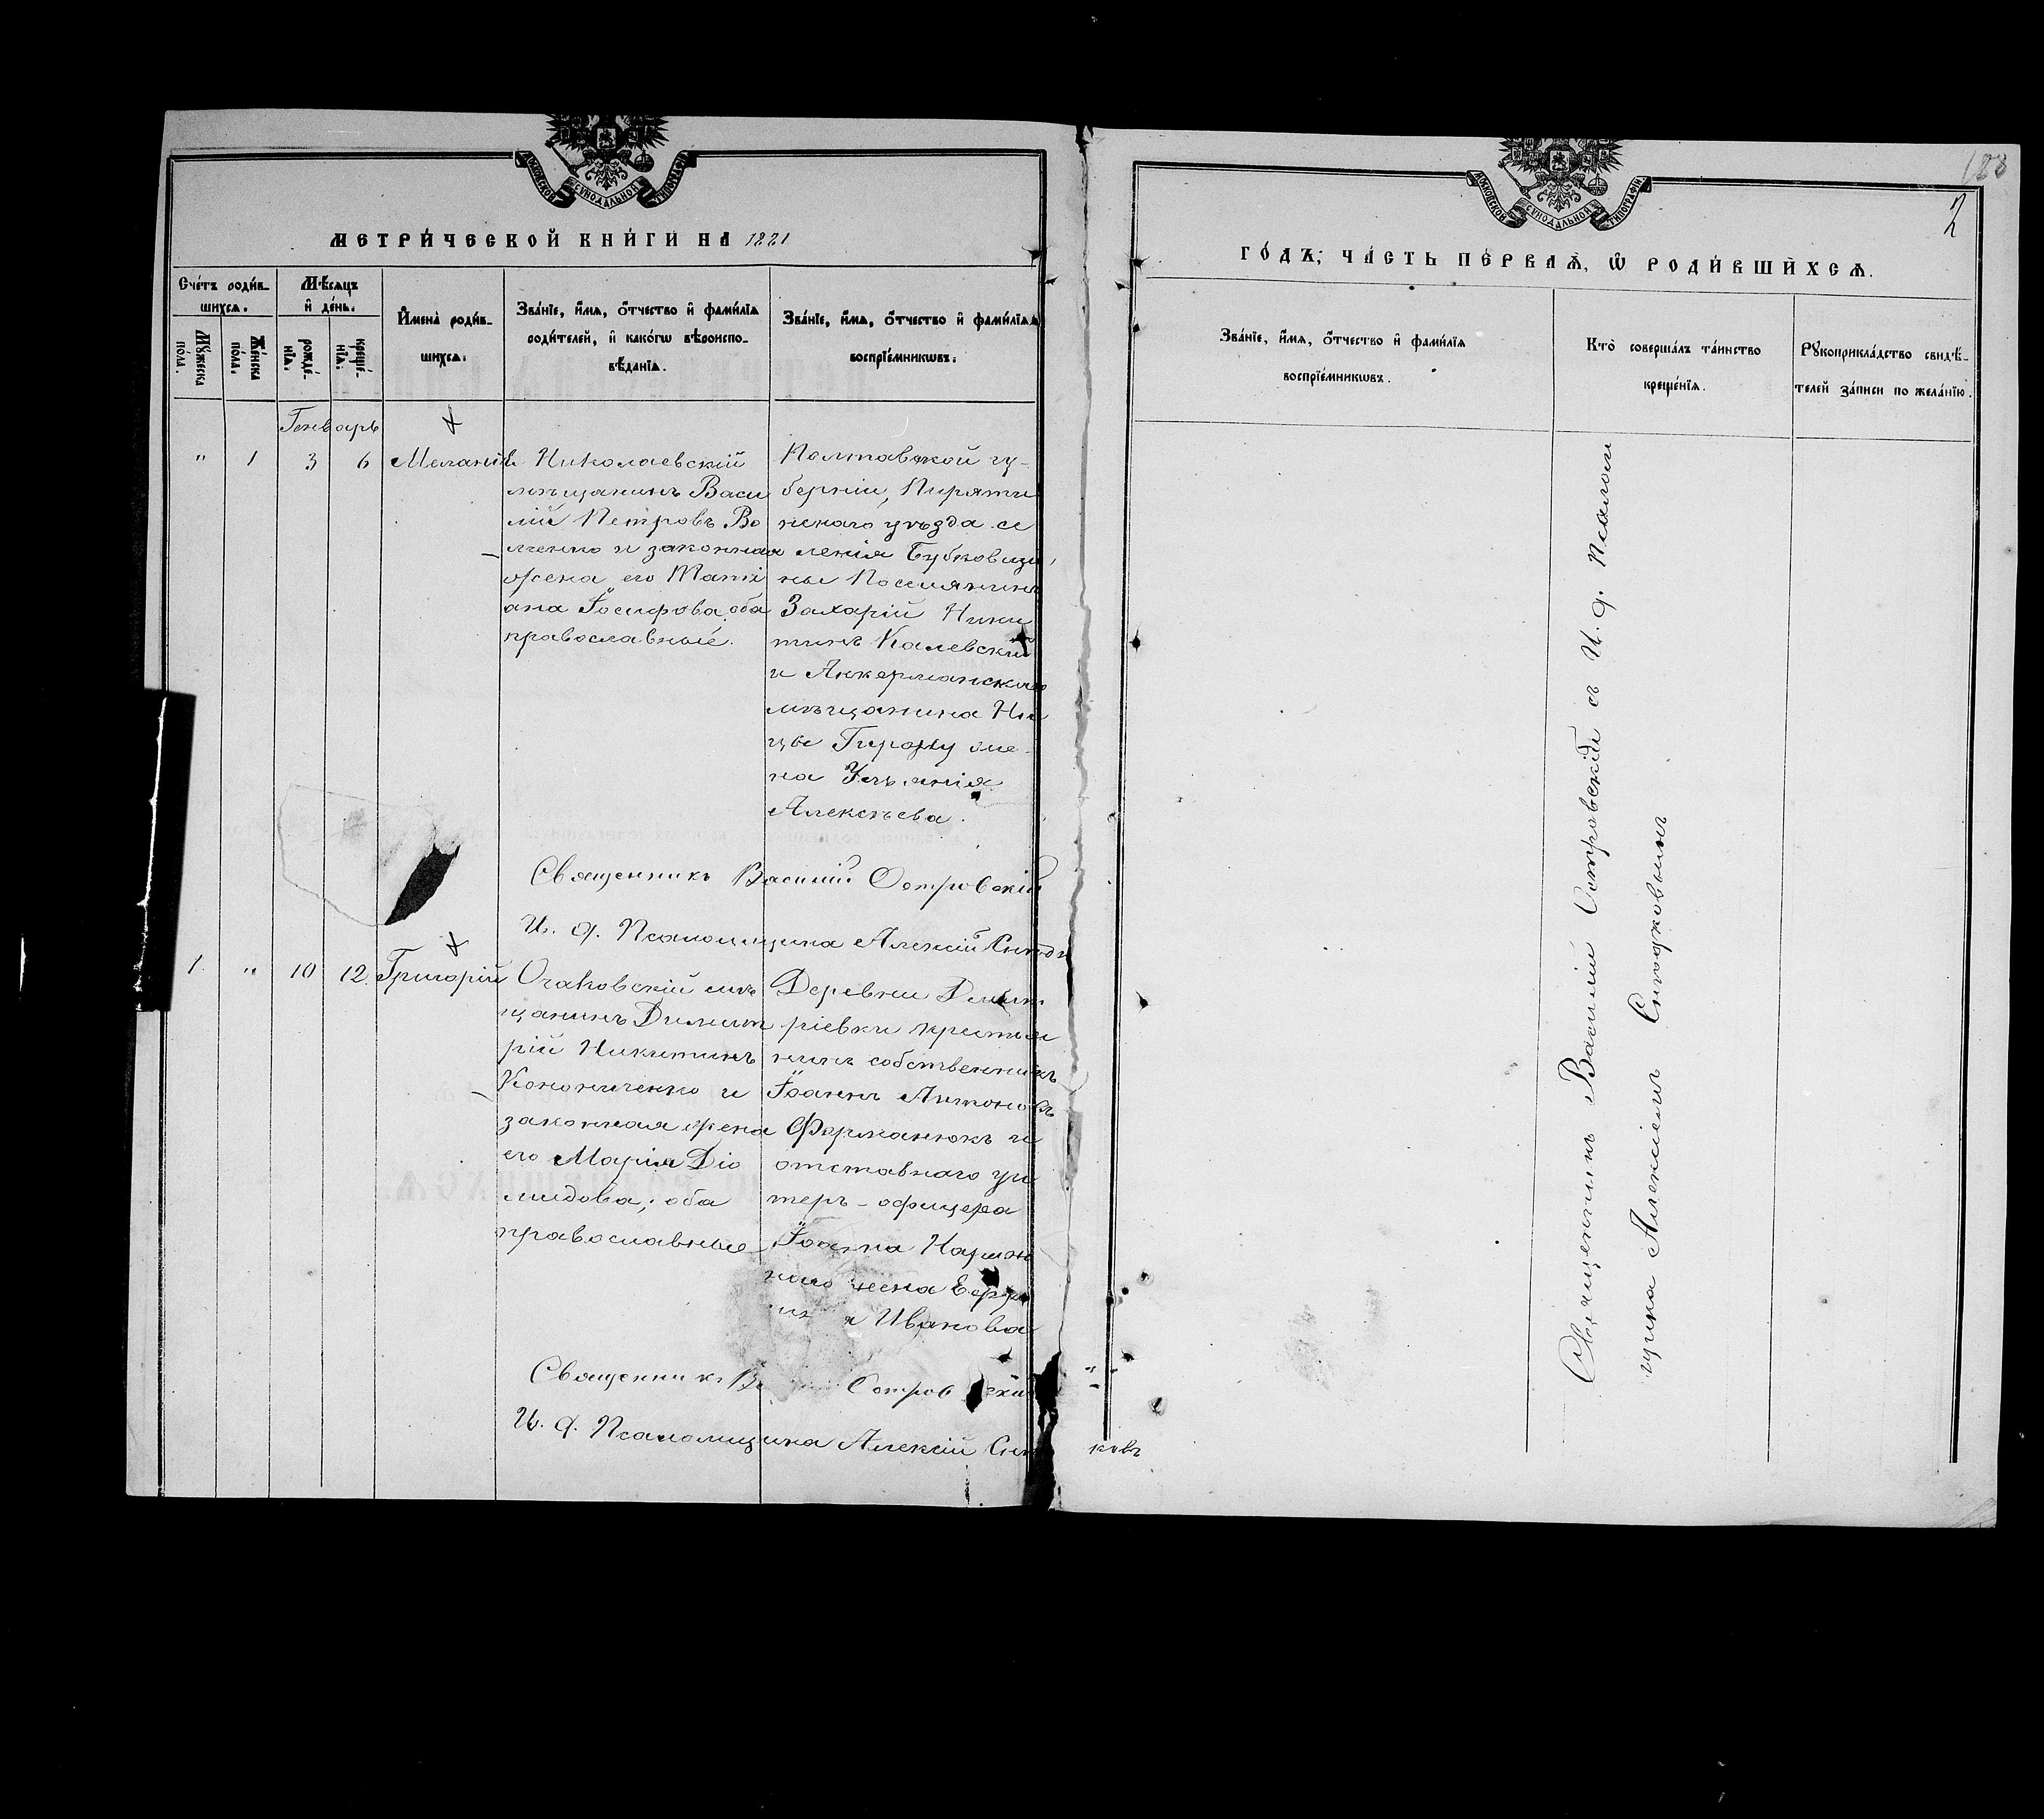 МОСКОВСКОЙ СѴНОДАЛЬНОЙ ТИПОГРАФІИ
МЕТРИ́ЧЕСКОЙ КНИ́ГИ НА 1881
Сче́тъ роди́в-
шихсѧ.
Мѣ́сяцъ
и҆ де́нь.
И҆мена̀ роди́в-
шихсѧ.
Зва́нїе, и҆́мѧ, ѻ҆́тчество и҆ фами́лїѧ
роди́телей, и҆ како́гѡ вѣроиспо-
вѣ́данїѧ.
Зва́нїе, и҆́мѧ, ѻ҆́тчество и҆ фами́лїѧ
воспрїе́мникѡвъ.
Мꙋ́жеска
по́ла.
Же́нска
по́ла.
рожде́-
нїѧ.
креще́-
нїѧ.
Генварь
" 1 3 6 Меланія
Николаевскій
мѣщанинъ Васи
лій Петровъ Во
лченко и законная
жена его Тати
ана Іосифова, оба
православные.
Полтавской гу-
берніи, Пиряти
нскаго уѣзда се
ленія
ны Поселянинъ
Захарій Ники
тинъ Калевскій
и Аккерманскаго
мѣщанина
жена
Алексѣева.
Священникъ Василій Островскій
И. д. Псаломщика Алексій
1 " 10 12 Григорій
Очаковскій мѣ
щанинъ Димит
рій Никитинъ
Кононченко и
законная жена
его Марія Діо
мидова; оба
православные
Деревни Димит
ріевки крестья
нинъ собственникъ
Іоаннъ Антоновъ
Фурманюкъ и
отставного ун
теръ-офицера
Іоанна
жена
Иванова
Священникъ Островскій
И. д. Псаломщика Алексій
ковъ
183
2
МОСКОВСКОЙ СѴНОДАЛЬНОЙ ТИПОГРАФІИ
ГО́ДЪ; ЧА́СТЬ ПЕ́РВАѦ, Ѡ҆ РОДИ́ВШИХСѦ.
Зва́нїе, и҆́мѧ, ѻ҆́тчество и҆ фами́лїѧ
воспрїе́мникѡвъ.
Кто̀ соверша́лъ та́инство
креще́нїѧ.
Рꙋкоприкла́дство свидѣ́-
телей за́писи по жела́нїю.
Священникъ Василій Островскій съ И. д. Псалом
щика Алексіемъ